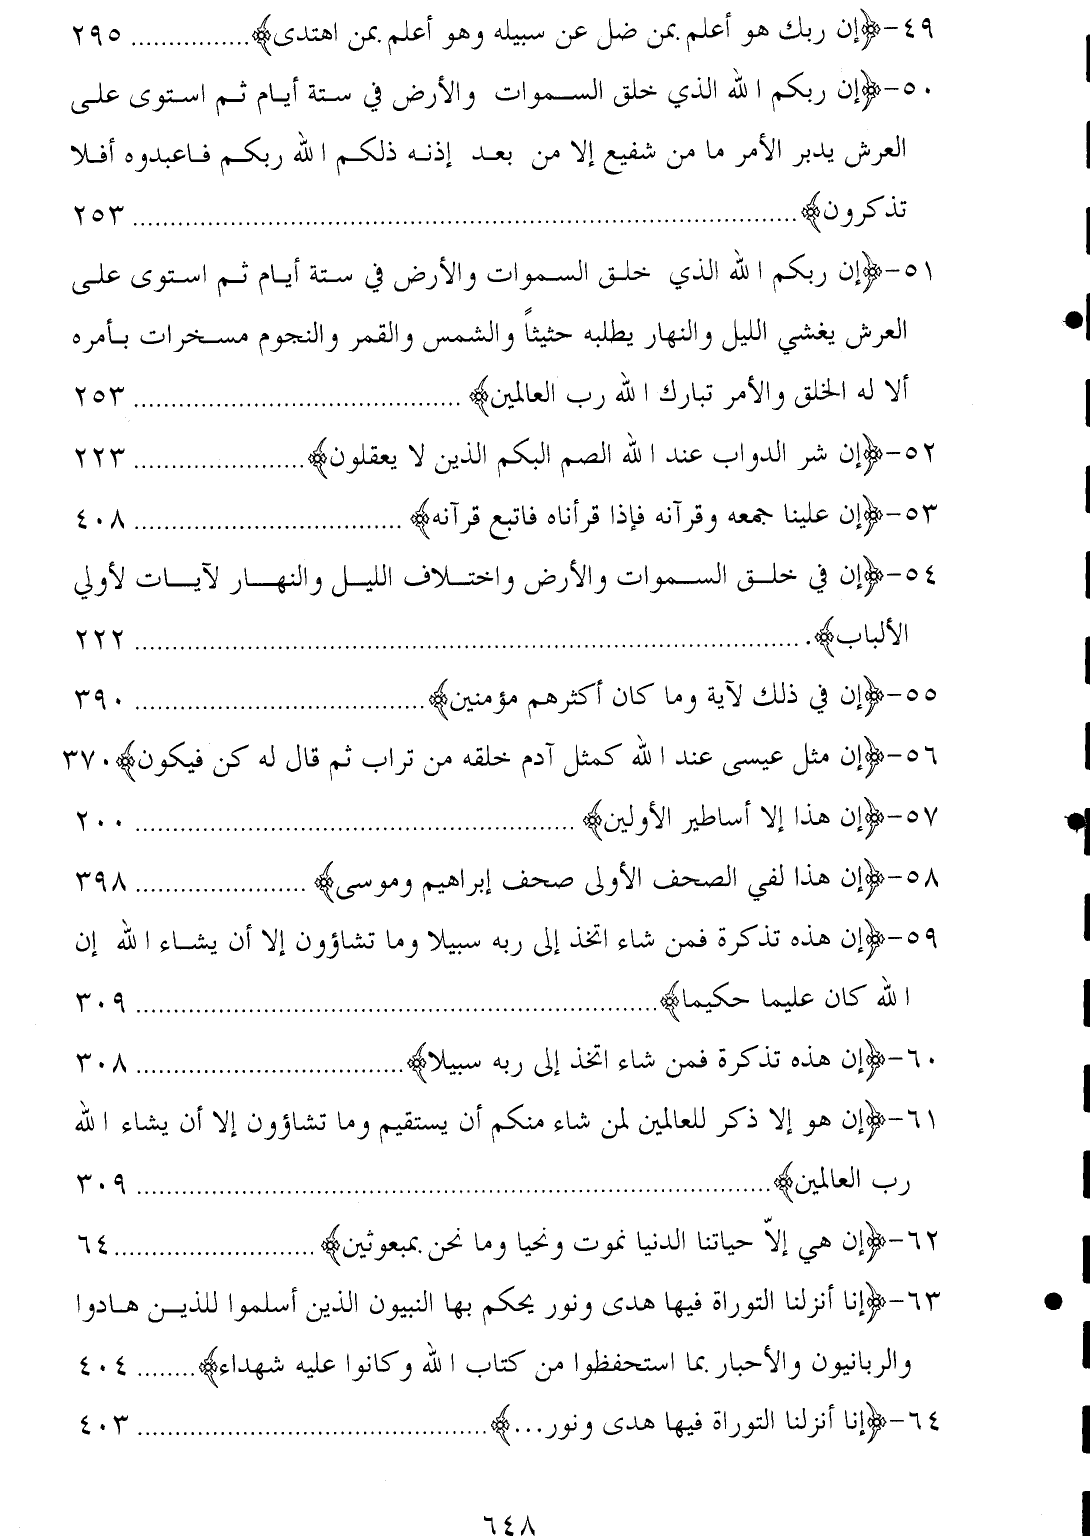 ٤٩-﴿إن ربك هو أعلم بمن ضل عن سبيله وهو أعلم بمن اهتدى﴾................ ٢٩٥
٥٠-﴿إن ربكم الله الذي خلق السموات والأرض في ستة أيام ثم استوى على
العرش يدبر الأمر ما من شفيع إلا من بعد إذنه ذلكم الله ربكم فاعبدوه أفلا
تذكرون﴾................................................................ ٢٥٣
٥١-﴿إن ربكم الله الذي خلق السموات والأرض في ستة أيام ثم استوى على
العرش يغشي الليل والنهار يطلبه حثيثاً والشمس والقمر والنجوم مسخرات بأمره
ألا له الخلق والأمر تبارك الله رب العالمين﴾ .................................. ٢٥٣
٥٢-﴿إن شر الدواب عند الله الصم البكم الذين لا يعقلون﴾..................... ٢٢٣
٥٣-﴿إن علينا جمعه وقرآنه فإذا قرأناه فاتبع قرآنه﴾ ........................... ٤٠٨
٥٤-﴿إن في خلق السموات والأرض واختلاف الليل والنهار لآيات لأولي
الألباب﴾. ................................................................ ٢٢٢
٥٥-﴿إن في ذلك لآية وما كان أكثرهم مؤمنين﴾.............................. ٣٩٠
٥٦-﴿إن مثل عيسى عند الله كمثل آدم خلقه من تراب ثم قال له كن فيكون﴾٣٧٠
٥٧-﴿إن هذا إلا أساطير الأولين﴾ ............................................ ٢٠٠
٥٨-﴿إن هذا لفي الصحف الأولى صحف إبراهيم وموسى﴾ .................. ٣٩٨
٥٩-﴿إن هذه تذكرة فمن شاء اتخذ إلى ربه سبيلا وما تشاؤون إلا أن يشاء الله إن
الله كان عليما حكيما﴾.................................................... ٣٠٩
٦٠-﴿إن هذه تذكرة فمن شاء اتخذ إلى ربه سبيلا﴾........................... ٣٠٨
٦١-﴿إن هو إلا ذكر للعالمين لمن شاء منكم أن يستقيم وما تشاؤون إلا أن يشاء الله
رب العالمين﴾................................................................ ٣٠٩
٦٢-﴿إن هي إلاّ حياتنا الدنيا نموت ونحيا وما نحن بمبعوثين﴾ ....................٦٤
٦٣-﴿إنا أنزلنا التوراة فيها هدى ونور يحكم بها النبيون الذين أسلموا للذين هادوا
والربانيون والأحبار بما استحفظوا من كتاب الله وكانوا عليه شهداء﴾........ ٤٠٤
٦٤-﴿إنا أنزلنا التوراة فيها هدى ونور...﴾................................... ٤٠٣
٦٤٨